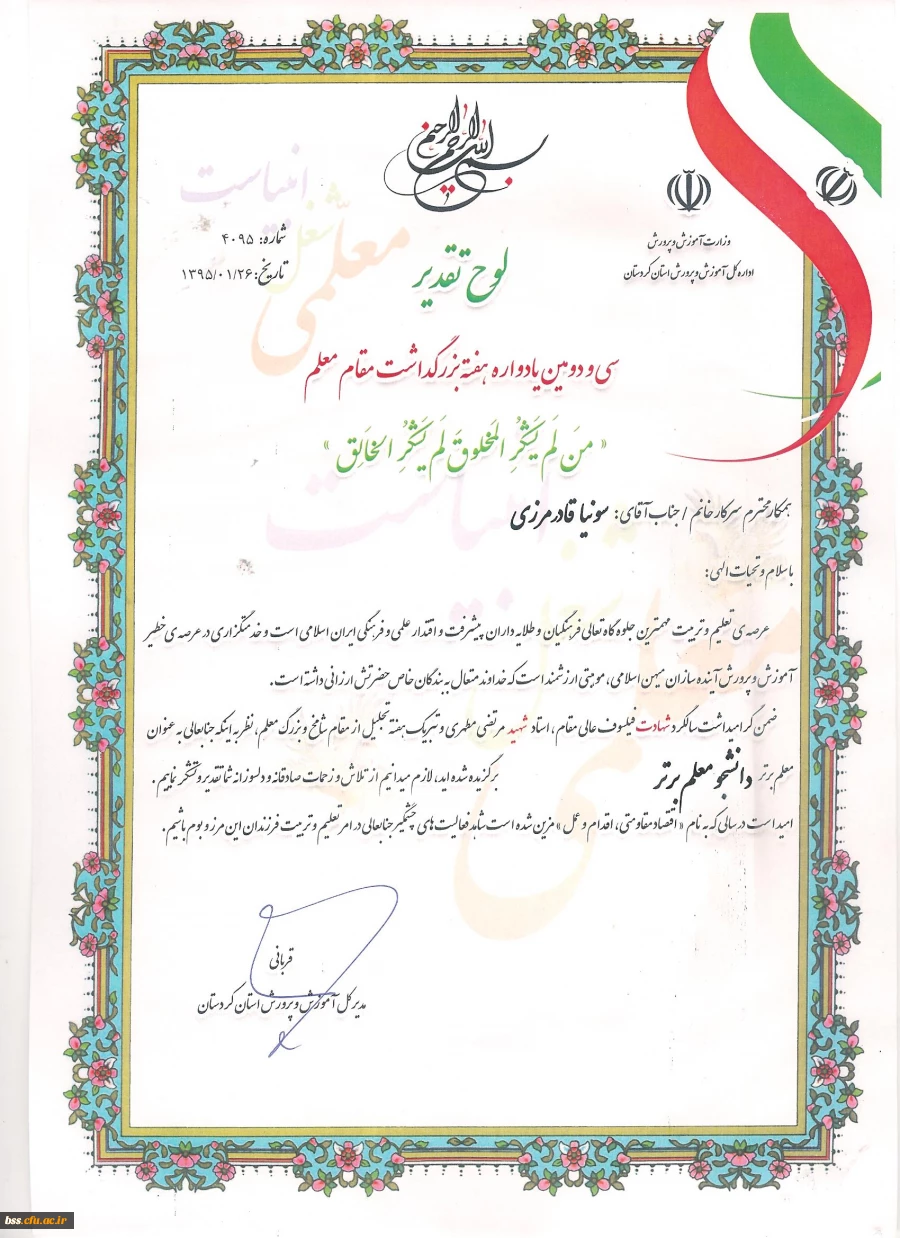 بسم الله الرحمن الرحیم
وزارت آموزش و پرورش
اداره کل آموزش و پرورش استان کردستان
شماره: ۴۰۹۵
تاریخ: ۱۳۹۵/۰۱/۲۶
معلمی شغل انبیاست
لوح تقدیر
سی و دومین یادواره هفته بزرگداشت مقام معلم
« مَن لَم یَشکُرِ المَخلوقَ لَم یَشکُرِ الخالِق »
همکار محترم سرکار خانم / جناب آقای: سونیا قادرمرزی
با سلام و تحیات الهی:
عرصه ی تعلیم و تربیت مهمترین جلوه گاه تعالی فرهنگیان و طلایه داران پیشرفت و اقتدار علمی و فرهنگی ایران اسلامی است و خدمتگزاری در عرصه ی خطیر
آموزش و پرورش آینده سازان میهن اسلامی، موهبتی ارزشمند است که خداوند متعال به بندگان خاص حضرتش ارزانی داشته است.
ضمن گرامیداشت سالگرد شهادت فیلسوف عالی مقام، استاد شهید مرتضی مطهری و تبریک هفته تجلیل از مقام شامخ و بزرگ معلم، نظر به اینکه جنابعالی به عنوان
معلم برتر دانشجو معلم برتر برگزیده شده اید، لازم میدانیم از تلاش و زحمات صادقانه و دلسوزانه شما تقدیر و تشکر نماییم.
امید است در سالی که به نام « اقتصاد مقاومتی، اقدام و عمل » مزین شده است شاهد فعالیت های چشمگیر جنابعالی در امر تعلیم و تربیت فرزندان این مرز و بوم باشیم.
قربانی
مدیرکل آموزش و پرورش استان کردستان
معلمی شغل انبیاست
bss.cfu.ac.ir